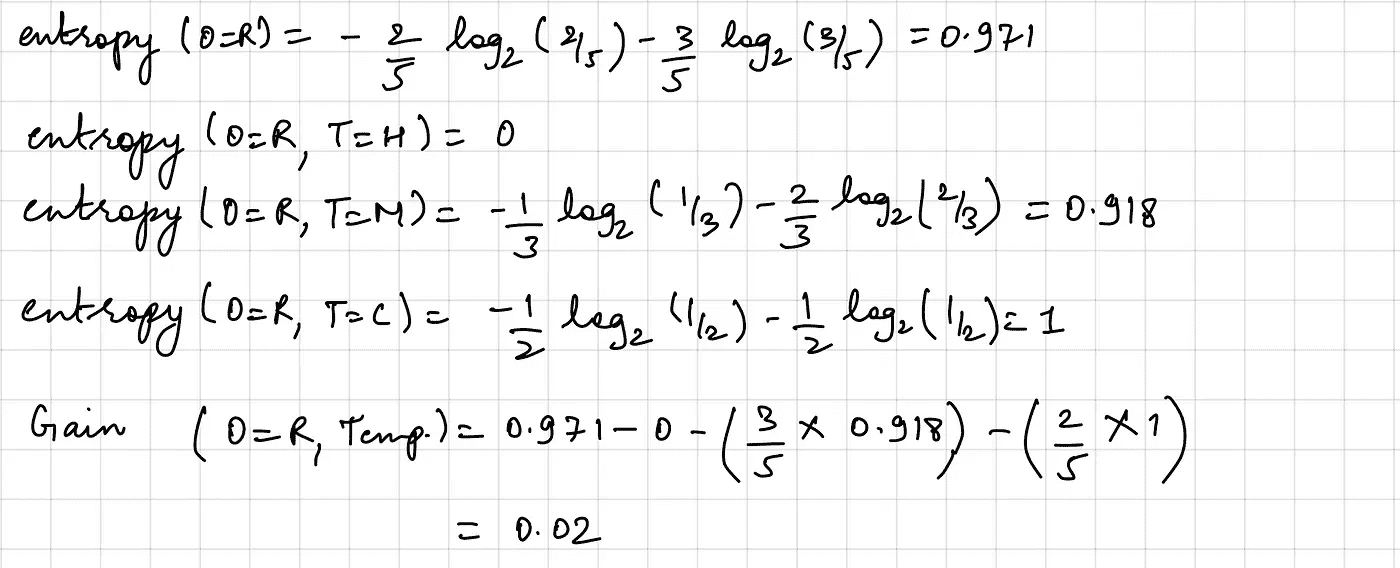 entropy (O=R) = - 2/5 log₂ (2/5) - 3/5 log₂ (3/5) = 0.971
entropy (O=R, T=H) = 0
entropy (O=R, T=M) = -1/3 log₂ (1/3) - 2/3 log₂ (2/3) = 0.918
entropy (O=R, T=C) = -1/2 log₂ (1/2) - 1/2 log₂ (1/2) = 1
Gain (O=R, Temp.) = 0.971 - 0 - (3/5 × 0.918) - (2/5 × 1)
= 0.02